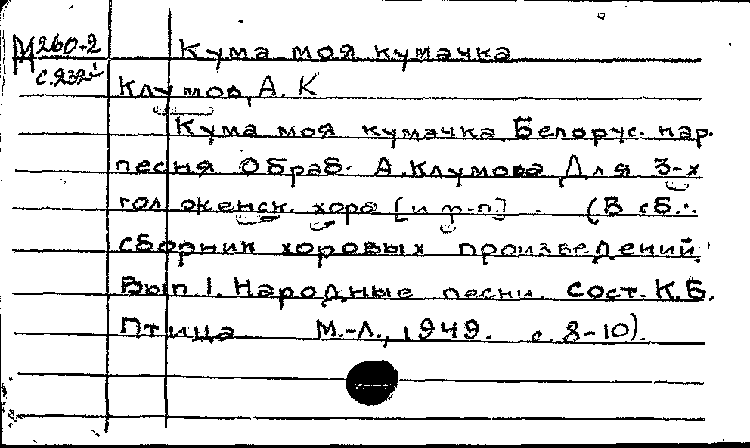 М260-2 Кума моя кумачка
с.232
Клумов, А. К
Кума моя кумачка. Белорус. нар.
песня Обраб. А.Клумова Для 3-х
гол женск. хора [и ф-п] . (В сб.:
сборник хоровых произведений.
Вып 1. Народные песни. сост. К.Б.
Птица М.-Л., 1949. с. 8-10).